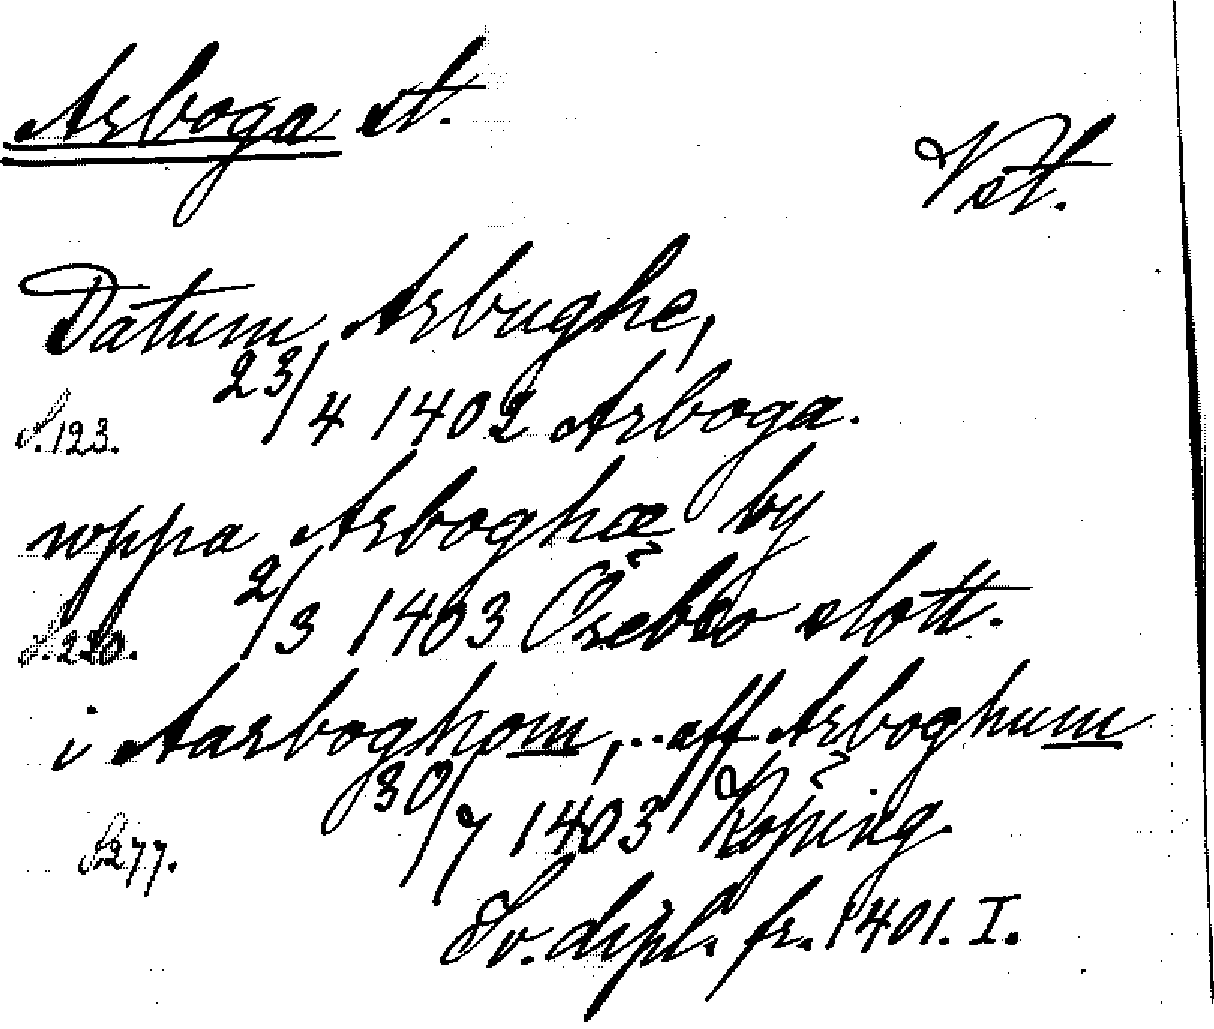 Arboga st.
Vst.
Datum Arbughe,
S. 123. 23/4 1402 Arboga.
uppa Arboghæ by
S. 220. 2/3 1403 Örebro slott.
i Aarboghom, .. aff Arboghum
S. 277. 30/7 1403 Köping.
Sv. dipl. fr. 1401. I.